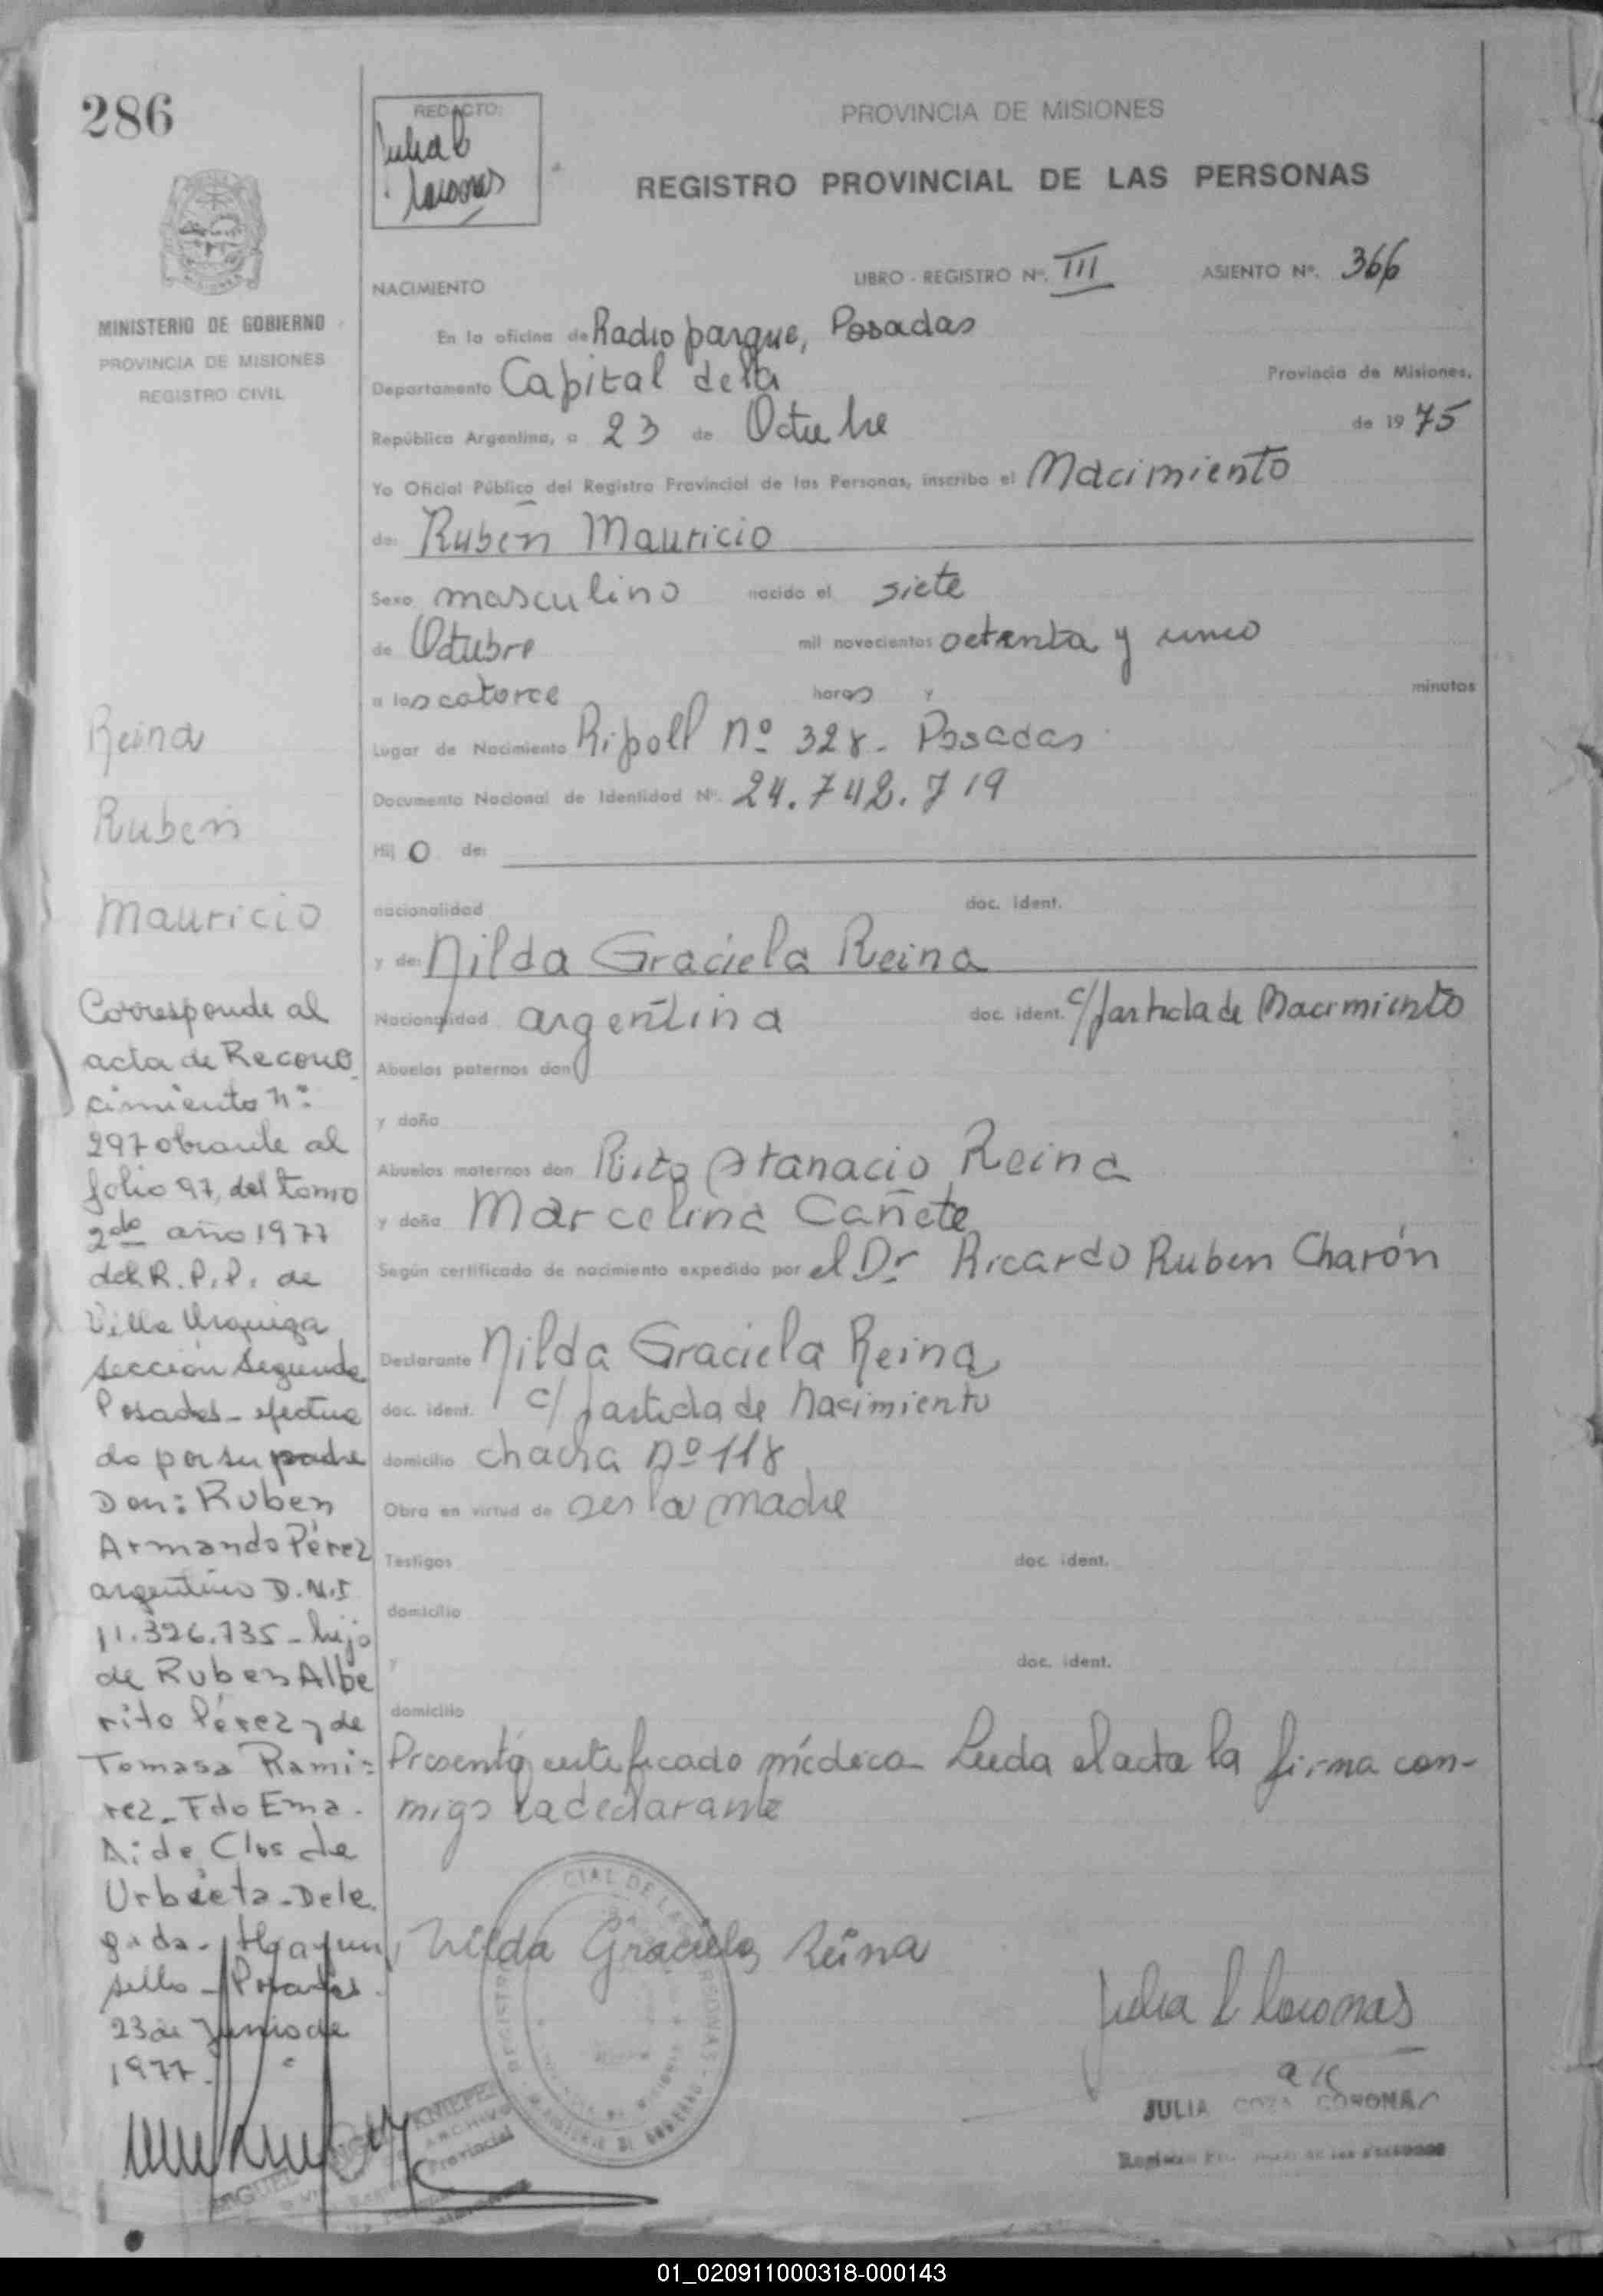 286
REDACTO:
Julia C
Coronas
PROVINCIA DE MISIONES
REGISTRO PROVINCIAL DE LAS PERSONAS
MINISTERIO DE GOBIERNO
PROVINCIA DE MISIONES
REGISTRO CIVIL
NACIMIENTO
LIBRO - REGISTRO Nº. III ASIENTO Nº. 366
En la oficina de Radio parque, Posadas
Departamento Capital de la Provincia de Misiones,
República Argentina, a 23 de Octubre de 1975
Yo Oficial Público del Registro Provincial de las Personas, inscribo el Nacimiento
de: Rubén Mauricio
Sexo masculino nacido el siete
de Octubre mil novecientos setenta y cinco
a las catorce horas y minutos
Lugar de Nacimiento Ripoll nº 328. Posadas
Documento Nacional de Identidad Nº. 24.742.719
Hijo de:
nacionalidad doc. ident.
y de: Nilda Graciela Reina
Nacionalidad argentina doc. ident. c/partida de Nacimiento
Abuelos paternos don
y doña
Abuelos maternos don Atanacio Reina
y doña Marcelina Cañete
Según certificado de nacimiento expedido por el Dr Ricardo Ruben Charón
Declarante Nilda Graciela Reina
doc. ident. c/ partida de Nacimiento
domicilio chacra nº 118
Obra en virtud de ser la madre
Testigos doc. ident.
domicilio
y doc. ident.
domicilio
Presentó certificado médico Leída el acta la firma con-
migo la declarante
Nilda Graciela Reina
Julia C Coronas
JULIA COZA CORONAS
Reina
Ruben
Mauricio
Corresponde al
acta de Recono
cimiento nº
297 obrante al
folio 97, del tomo
2do año 1977
del R.P.P. de
Villa Urquiza
sección segunda
Posadas - efectua
do por su padre
Don: Rubén
Armando Pérez
argentino D.N.I
11.326.735 - hijo
de Ruben Albe
rito Pérez y de
Tomasa Rami=
rez - Fdo Ema.
Aide Clos de
Urbieta - Dele
gada - Hay un
sello - Posadas
23 de Junio de
1977.
01_020911000318-000143